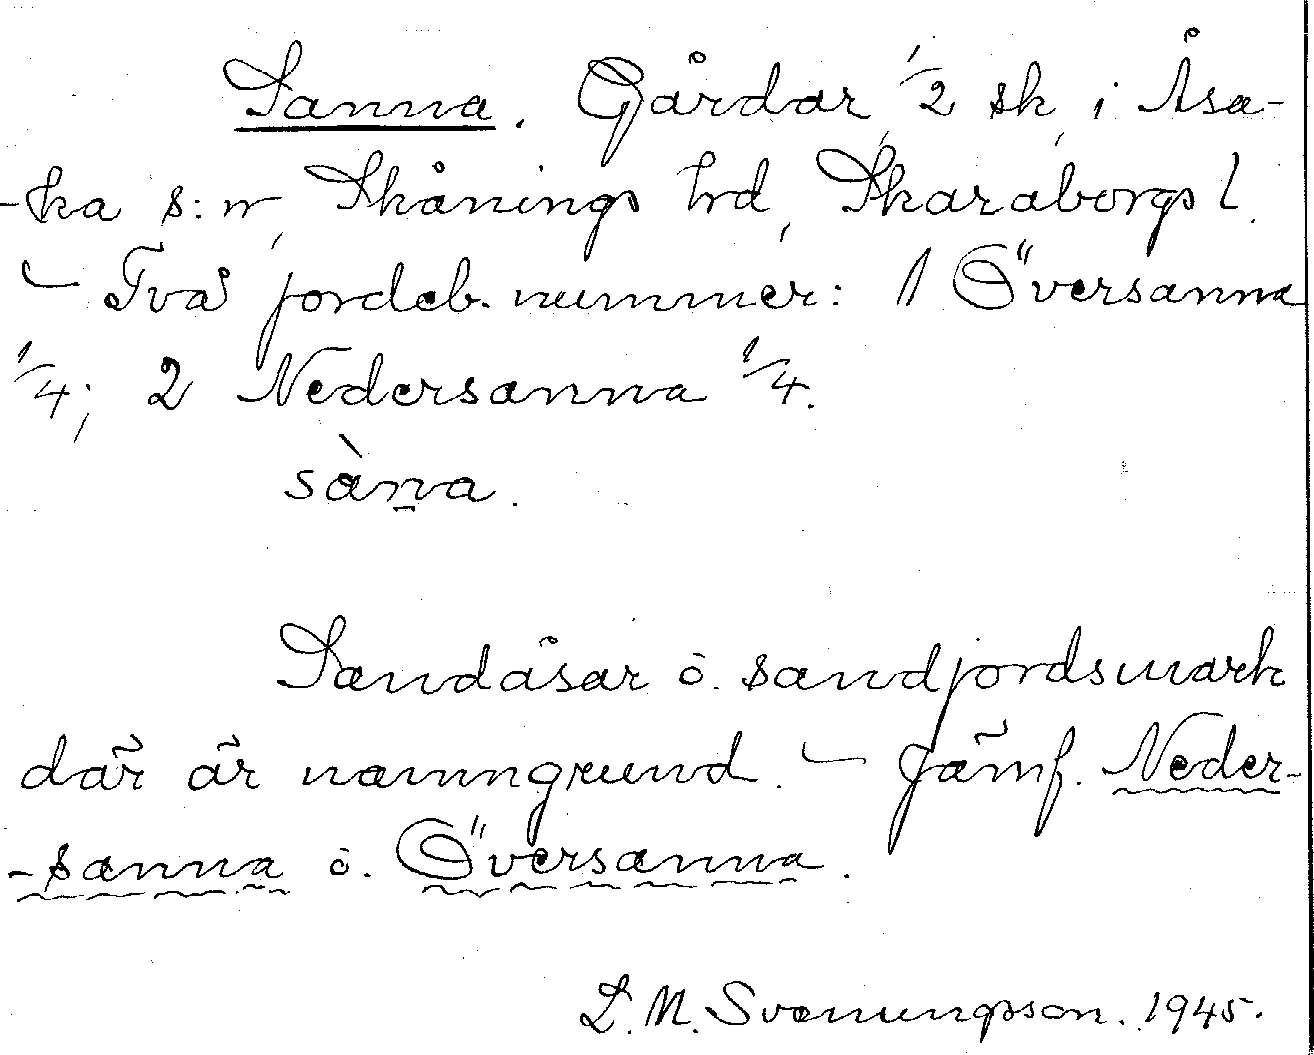 Sanna. Gårdar, 1/2 sk, i Åsa-
-ka s:n, Skånings hrd, Skaraborgs l.
– Två jordeb. nummer: 1 Översanna
1/4; 2 Nedersanna 1/4.
sàn̲a.
Sandåsar o. sandjordsmark
där är namngrund. – Jämf. Neder-
-sanna o. Översanna.
L. M. Svenungsson. 1945.